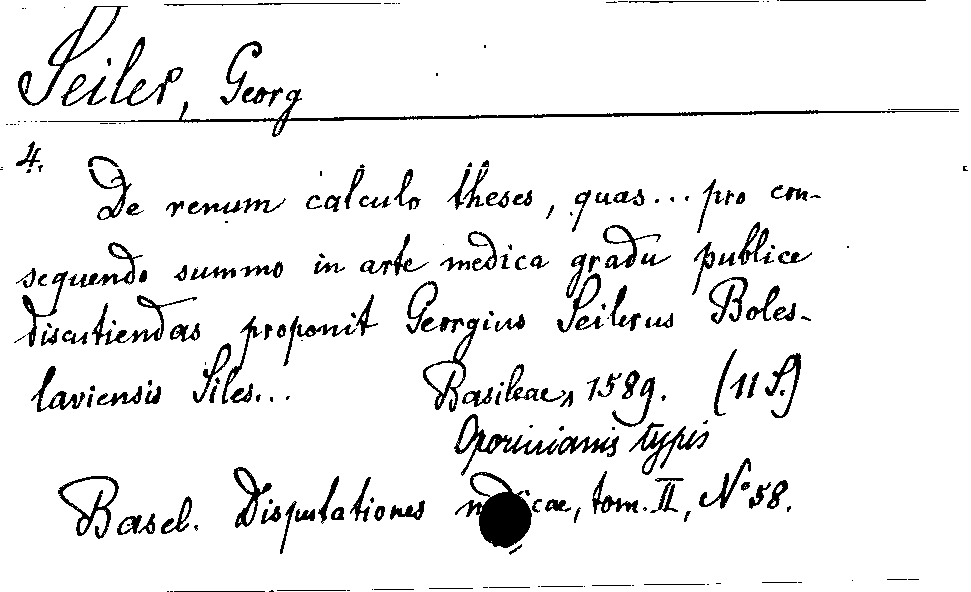 Seiler, Georg
4.
De renum calculo theses, quas... pro con-
sequendo summo in arte medica gradu publice
discutiendas proponit Georgius Seilerus Boles-
laviensis Siles... Basileae, 1589. (11 S.)
Oporinianis typis
Basel. Disputationes medicae, tom. II, N° 58.